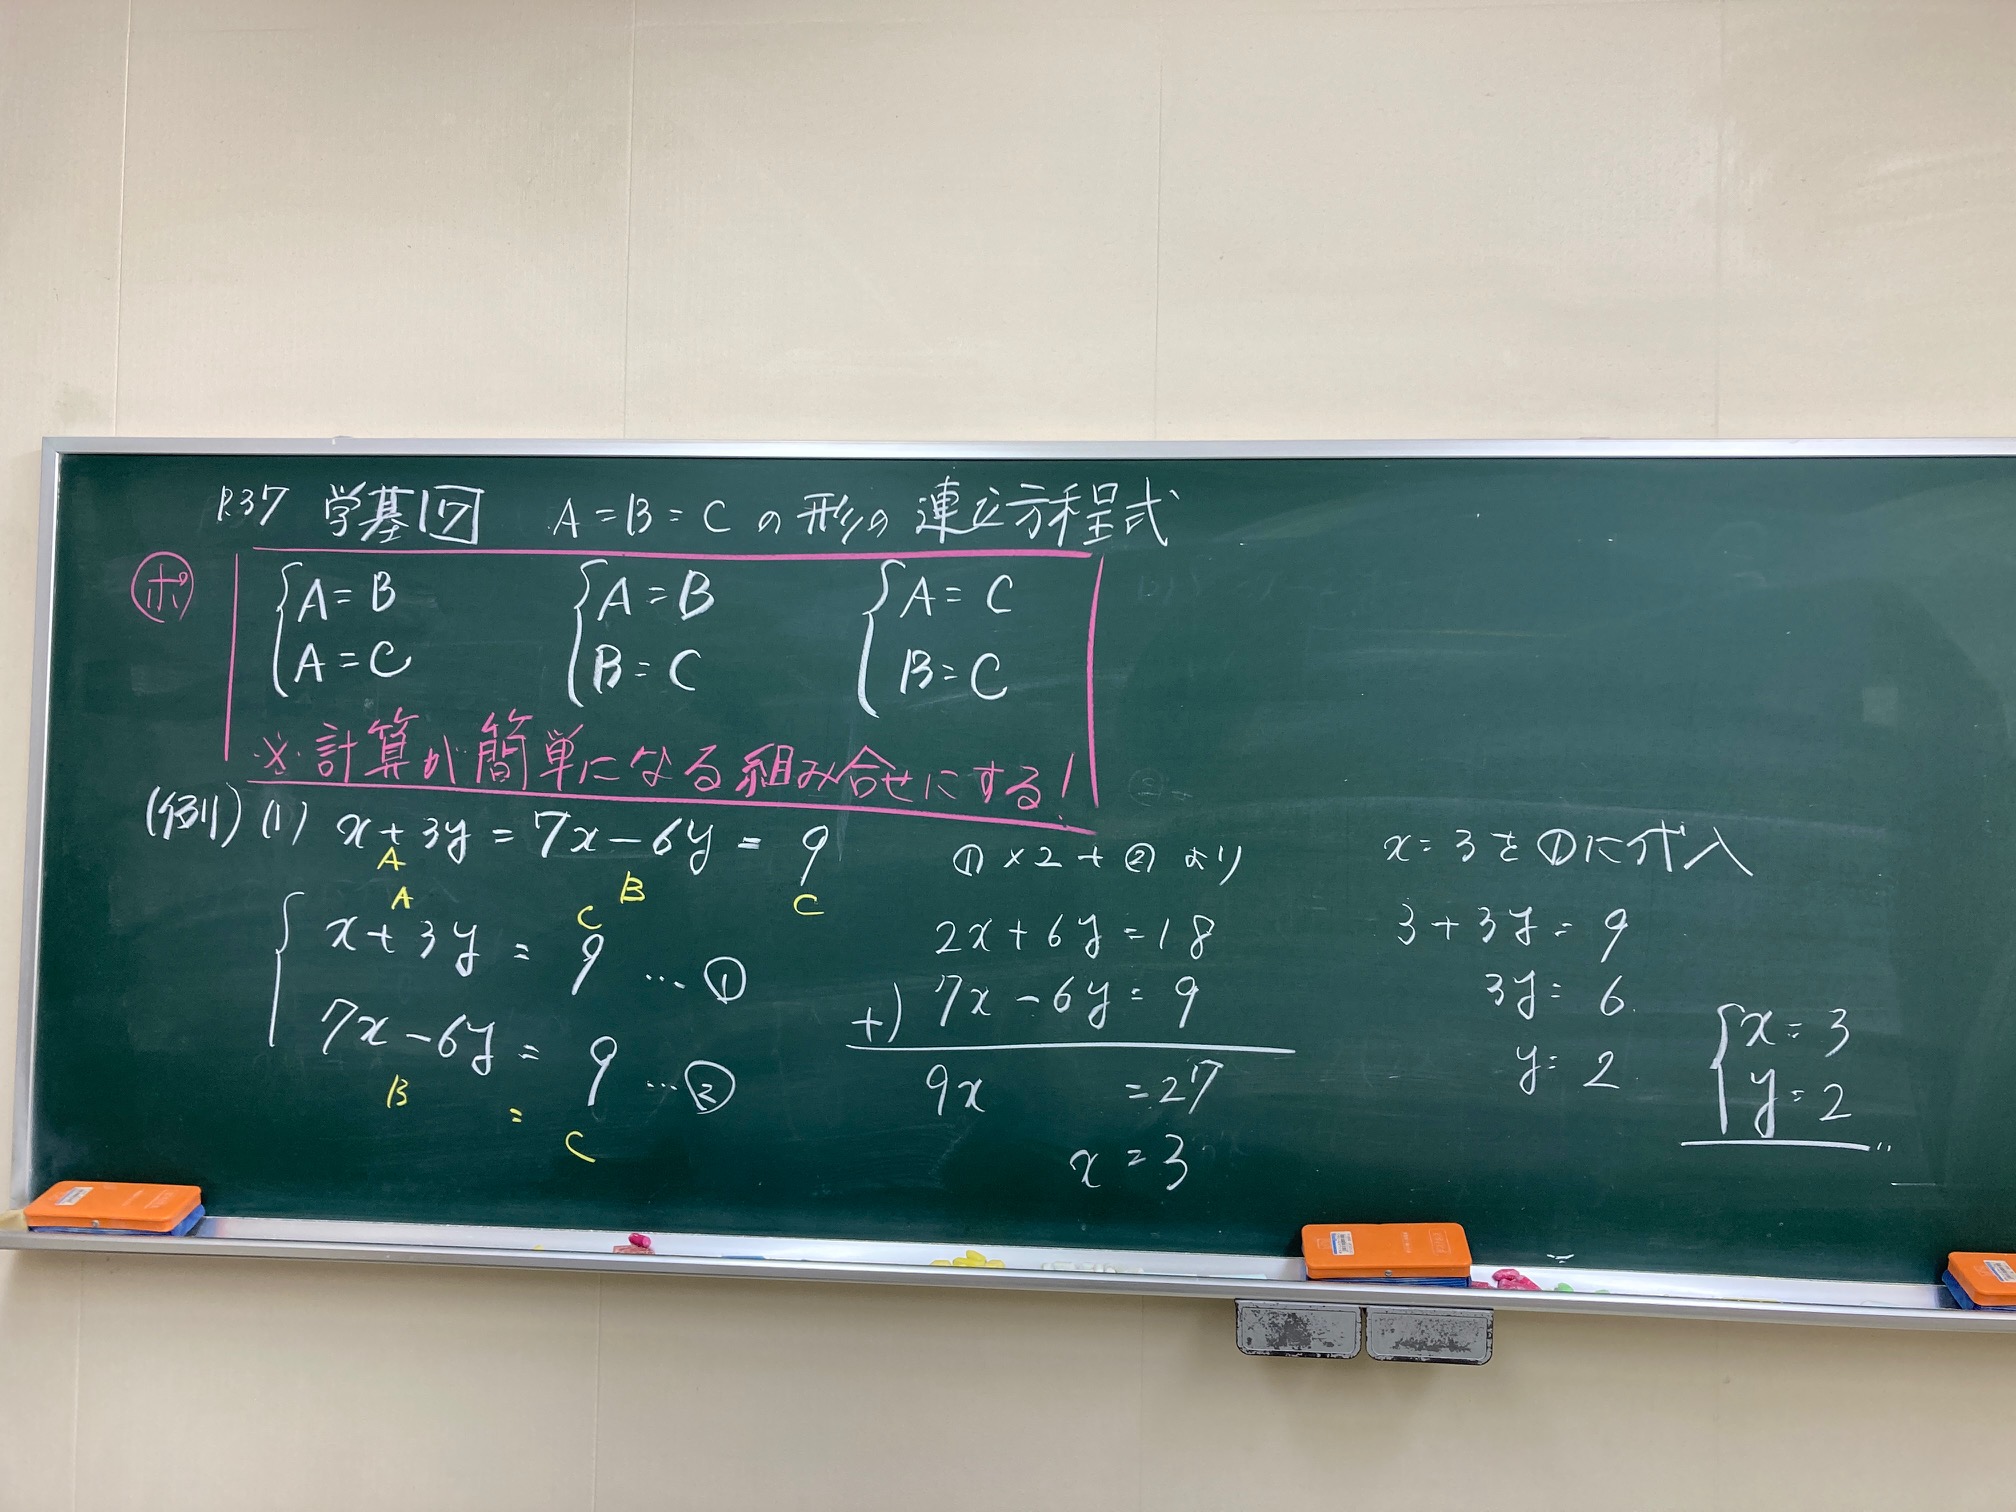 P.37 学基17 A=B=Cの形の連立方程式
ポ
{A=B
A=C
{A=B
B=C
{A=C
B=C
※計算が簡単になる組み合せにする!
(例) (1) x+3y=7x-6y=9
A B C
A C
{x+3y=9 … ①
7x-6y=9 … ②
B = C
①×2+②より
2x+6y=18
+) 7x-6y=9
9x =27
x=3
x=3を①に代入
3+3y=9
3y=6
y=2
{x=3
y=2